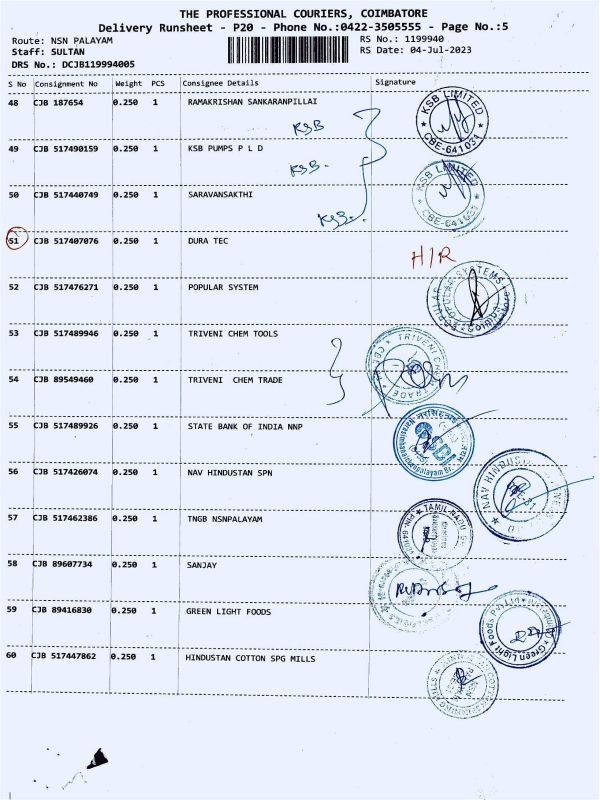 THE PROFESSIONAL COURIERS, COIMBATORE
Delivery Runsheet - P20 - Phone No.:0422-3505555 - Page No.:5
Route: NSN PALAYAM RS No.: 1199940
Staff: SULTAN RS Date: 04-Jul-2023
DRS No.: DCJB119994005
S No Consignment No Weight PCS Consignee Details Signature
48 CJB 187654 0.250 1 RAMAKRISHAN SANKARANPILLAI
KSB LIMITED
CBE-641031
KSB
49 CJB 517490159 0.250 1 KSB PUMPS P L D
KSB
KSB LIMITED
CBE-641031
50 CJB 517440749 0.250 1 SARAVANSAKTHI
KSB
51 CJB 517407076 0.250 1 DURA TEC
H/R
52 CJB 517476271 0.250 1 POPULAR SYSTEM
POPULAR SYSTEMS
53 CJB 517489946 0.250 1 TRIVENI CHEM TOOLS
TRIVENI CHEM TRADE
54 CJB 89549460 0.250 1 TRIVENI CHEM TRADE
55 CJB 517489926 0.250 1 STATE BANK OF INDIA NNP
SBI
56 CJB 517426074 0.250 1 NAV HINDUSTAN SPN
NAV HINDUSTAN
57 CJB 517462386 0.250 1 TNGB NSNPALAYAM
TAMIL NADU
58 CJB 89607734 0.250 1 SANJAY
59 CJB 89416830 0.250 1 GREEN LIGHT FOODS
Green Light Foods Pvt Ltd
60 CJB 517447862 0.250 1 HINDUSTAN COTTON SPG MILLS